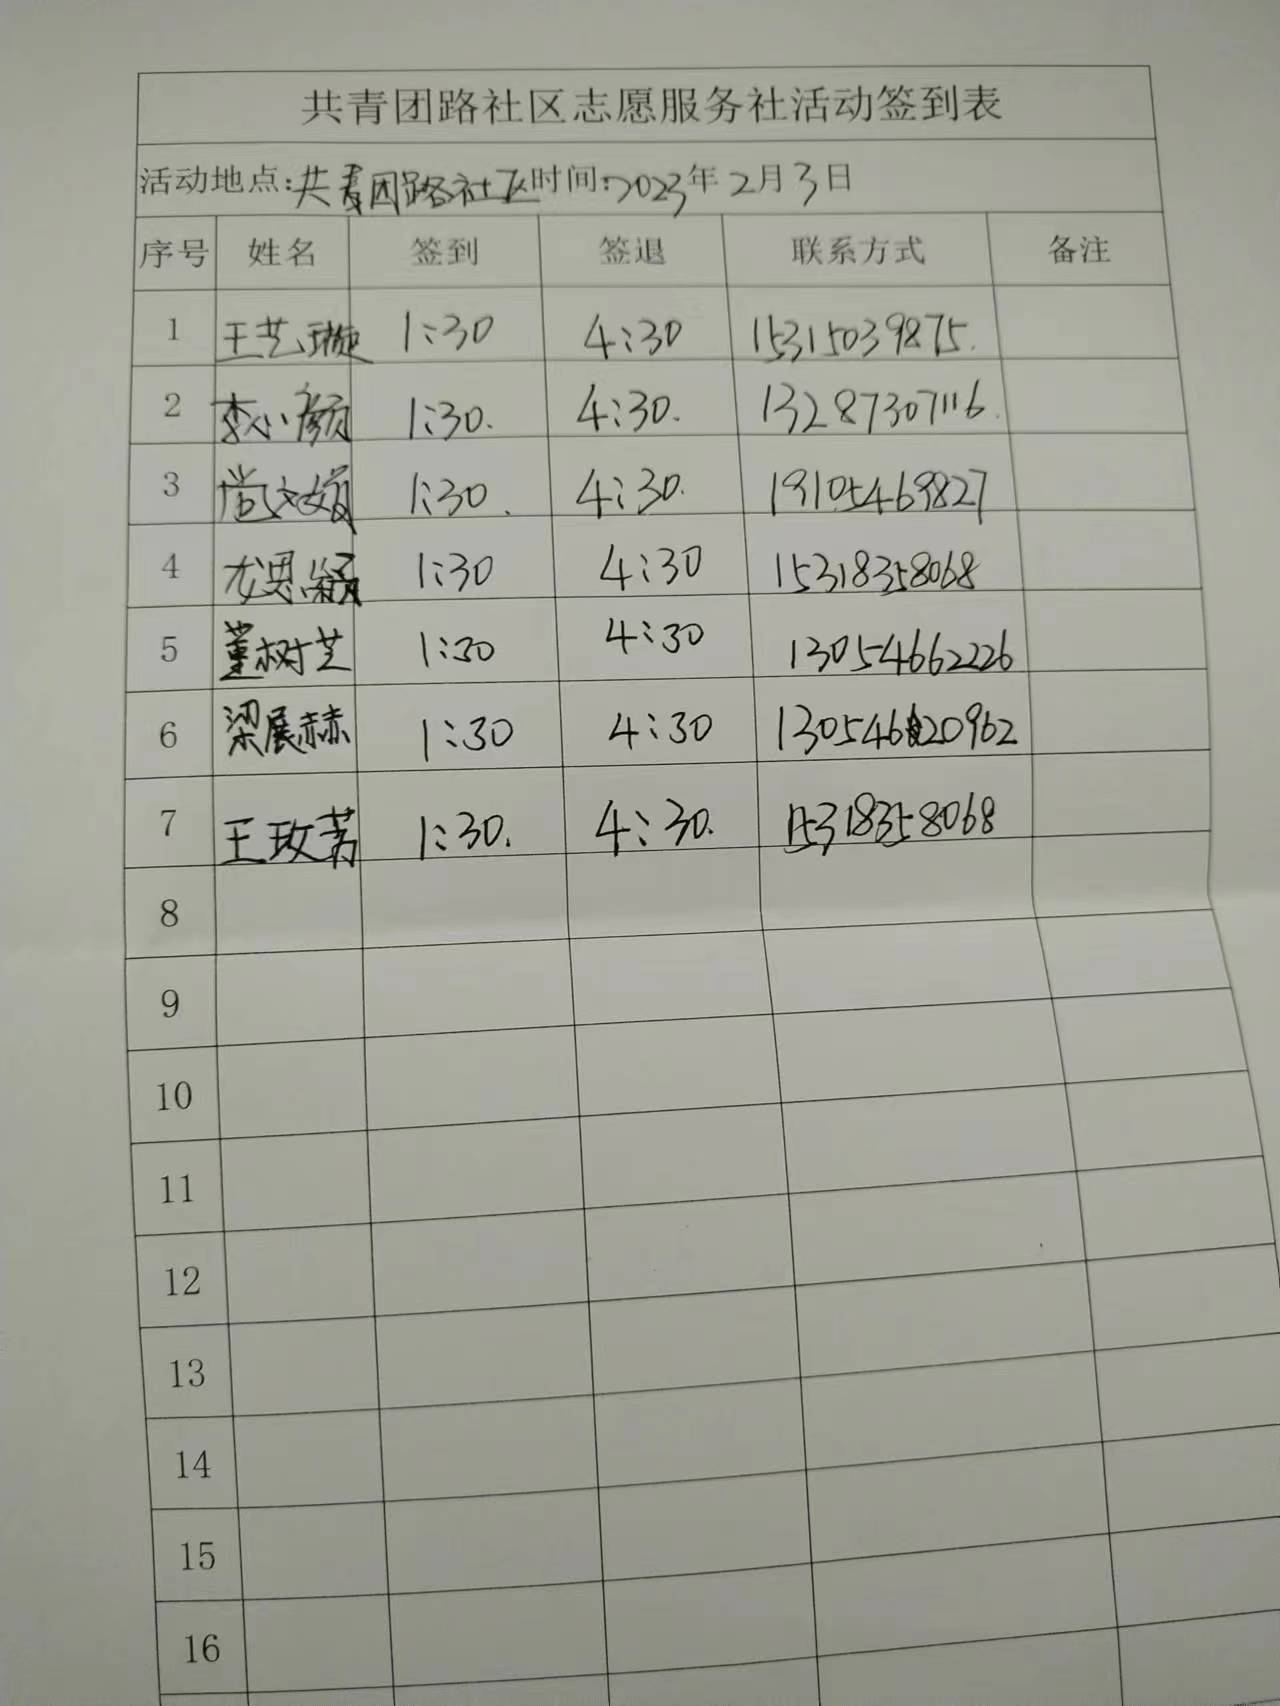 共青团路社区志愿服务社活动签到表
活动地点:共青团路社区时间:2023年2月3日
序号 姓名 签到 签退 联系方式 备注
1 王艺璇 1:30 4:30 15315039875.
2 李小颜 1:30. 4:30. 13287307116.
3 1:30. 4:30. 19105469827
4 尤思颖 1:30 4:30 15318358068
5 董树芝 1:30 4:30 13054662226
6 梁展赫 1:30 4:30 13054620962
7 王玫 1:30. 4:30. 15318358068
8
9
10
11
12
13
14
15
16